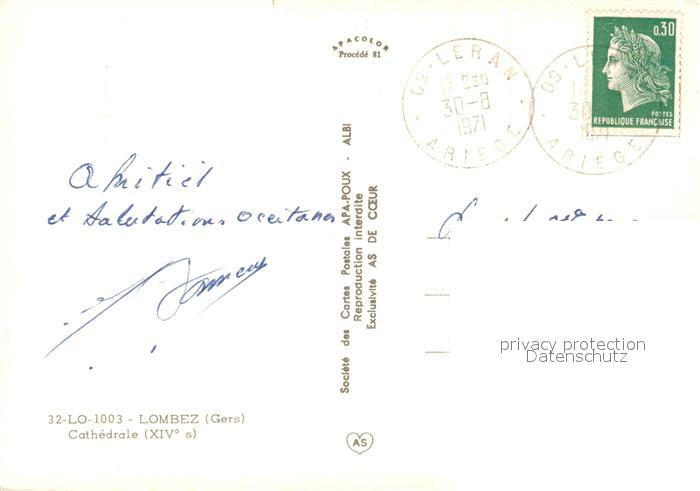 APACOLOR
Procédé 81
0,30
POSTES
REPUBLIQUE FRANÇAISE
09-LERAN
17H30
30-8
1971
ARIEGE
09-L
30
ARIEGE
Amitiés
et salutations occitanes
Société des Cartes Postales APA-POUX - ALBI
Reproduction interdite
Exclusivité AS DE CŒUR
privacy protection
Datenschutz
32-LO-1003 - LOMBEZ (Gers)
Cathédrale (XIV° s)
AS